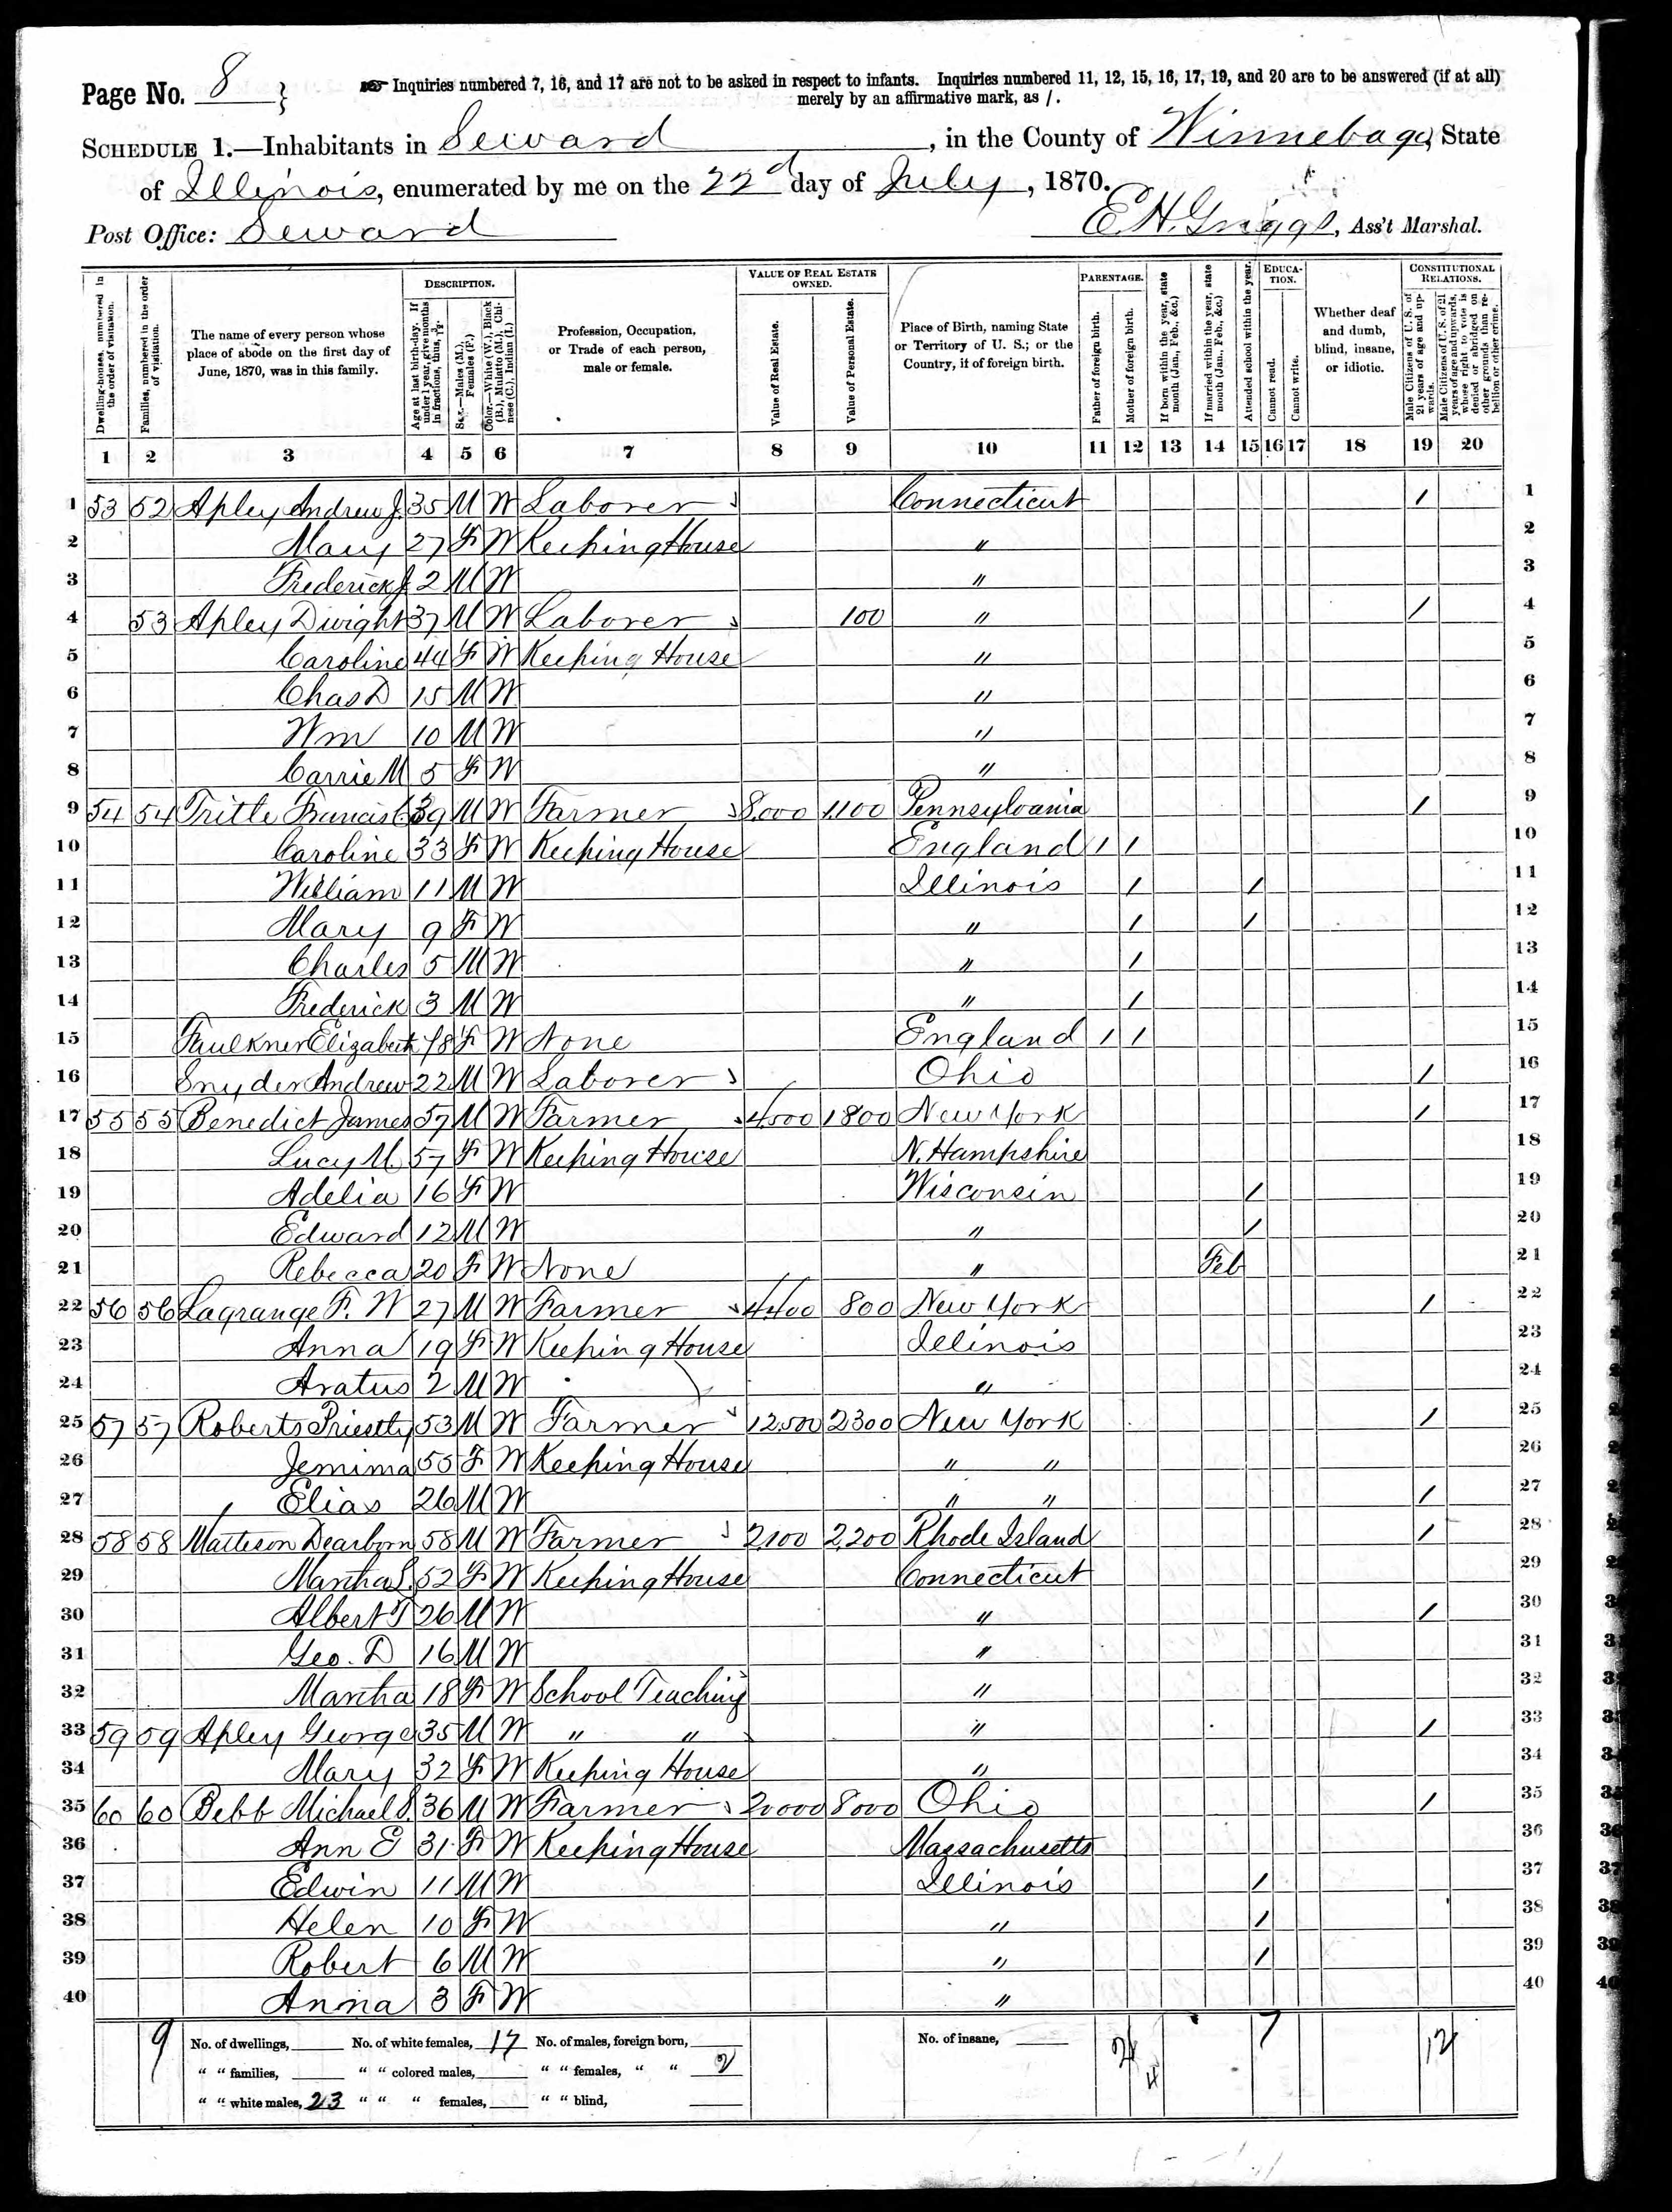 Page No. 8 }
☞ Inquiries numbered 7, 16, and 17 are not to be asked in respect to infants. Inquiries numbered 11, 12, 15, 16, 17, 19, and 20 are to be answered (if at all)
merely by an affirmative mark, as /.
SCHEDULE 1.—Inhabitants in Seward, in the County of Winnebago, State
of Illinois, enumerated by me on the 22d day of July, 1870.
Post Office: Seward E. H. Griggs, Ass't Marshal.
Dwelling-houses, numbered in the order of visitation.
Families, numbered in the order of visitation.
The name of every person whose place of abode on the first day of June, 1870, was in this family.
DESCRIPTION.
Age at last birth-day. If under 1 year, give months in fractions, thus, 3/12.
Sex.—Males (M.), Females (F.)
Color.—White (W.), Black (B.), Mulatto (M.), Chinese (C.), Indian (I.)
Profession, Occupation, or Trade of each person, male or female.
VALUE OF REAL ESTATE OWNED.
Value of Real Estate.
Value of Personal Estate.
Place of Birth, naming State or Territory of U. S.; or the Country, if of foreign birth.
PARENTAGE.
Father of foreign birth.
Mother of foreign birth.
If born within the year, state month (Jan., Feb., &c.)
If married within the year, state month (Jan., Feb., &c.)
Attended school within the year.
EDUCATION.
Cannot read.
Cannot write.
Whether deaf and dumb, blind, insane, or idiotic.
CONSTITUTIONAL RELATIONS.
Male Citizens of U. S. of 21 years of age and upwards.
Male Citizens of U. S. of 21 years of age and upwards, whose right to vote is denied or abridged on other grounds than rebellion or other crime.
1 2 3 4 5 6 7 8 9 10 11 12 13 14 15 16 17 18 19 20
1 53 52 Apley Andrew J. 35 M W Laborer Connecticut / 1
2 Mary 27 F W Keeping House " 2
3 Frederick J 2 M W " 3
4 53 Apley Dwight 37 M W Laborer 100 " / 4
5 Caroline 44 F W Keeping House " 5
6 Chas D 15 M W " 6
7 Wm 10 M W " 7
8 Carrie M 5 F W " 8
9 54 54 Tritle Francis C 39 M W Farmer 8,000 1,100 Pennsylvania / 9
10 Caroline 33 F W Keeping House England / / 10
11 William 11 M W Illinois / / 11
12 Mary 9 F W " / / 12
13 Charles 5 M W " / 13
14 Frederick 3 M W " / 14
15 Faulkner Elizabeth 78 F W None England / / 15
16 Snyder Andrew 22 M W Laborer Ohio / 16
17 55 55 Benedict James 57 M W Farmer 4000 1800 New York / 17
18 Lucy M. 57 F W Keeping House N. Hampshire 18
19 Adelia 16 F W Wisconsin / 19
20 Edward 12 M W " / 20
21 Rebecca 20 F W None " Feb 21
22 56 56 Lagrange F. W 27 M W Farmer 4400 800 New York / 22
23 Anna 19 F W Keeping House Illinois 23
24 Aratus 2 M W " 24
25 57 57 Roberts Priestly 53 M W Farmer 12,500 2300 New York / 25
26 Jemima 55 F W Keeping House " " 26
27 Elias 26 M W " " / 27
28 58 58 Matteson Dearborn 58 M W Farmer 2,100 2,200 Rhode Island / 28
29 Martha S. 52 F W Keeping House Connecticut 29
30 Albert T 26 M W " / 30
31 Geo. D 16 M W " 31
32 Martha 18 F W School Teaching " 32
33 59 59 Apley George 35 M W " " " / 33
34 Mary 32 F W Keeping House " 34
35 60 60 Bebb Michael S. 36 M W Farmer 20000 8000 Ohio / 35
36 Ann E 31 F W Keeping House Massachusetts 36
37 Edwin 11 M W Illinois / 37
38 Helen 10 F W " / 38
39 Robert 6 M W " / 39
40 Anna 3 F W " 40
9 No. of dwellings, No. of white females, 17 No. of males, foreign born, No. of insane, 2 4 7 12
" " families, " " colored males, " " females, " " 2
" " white males, 23 " " " females, " " blind,